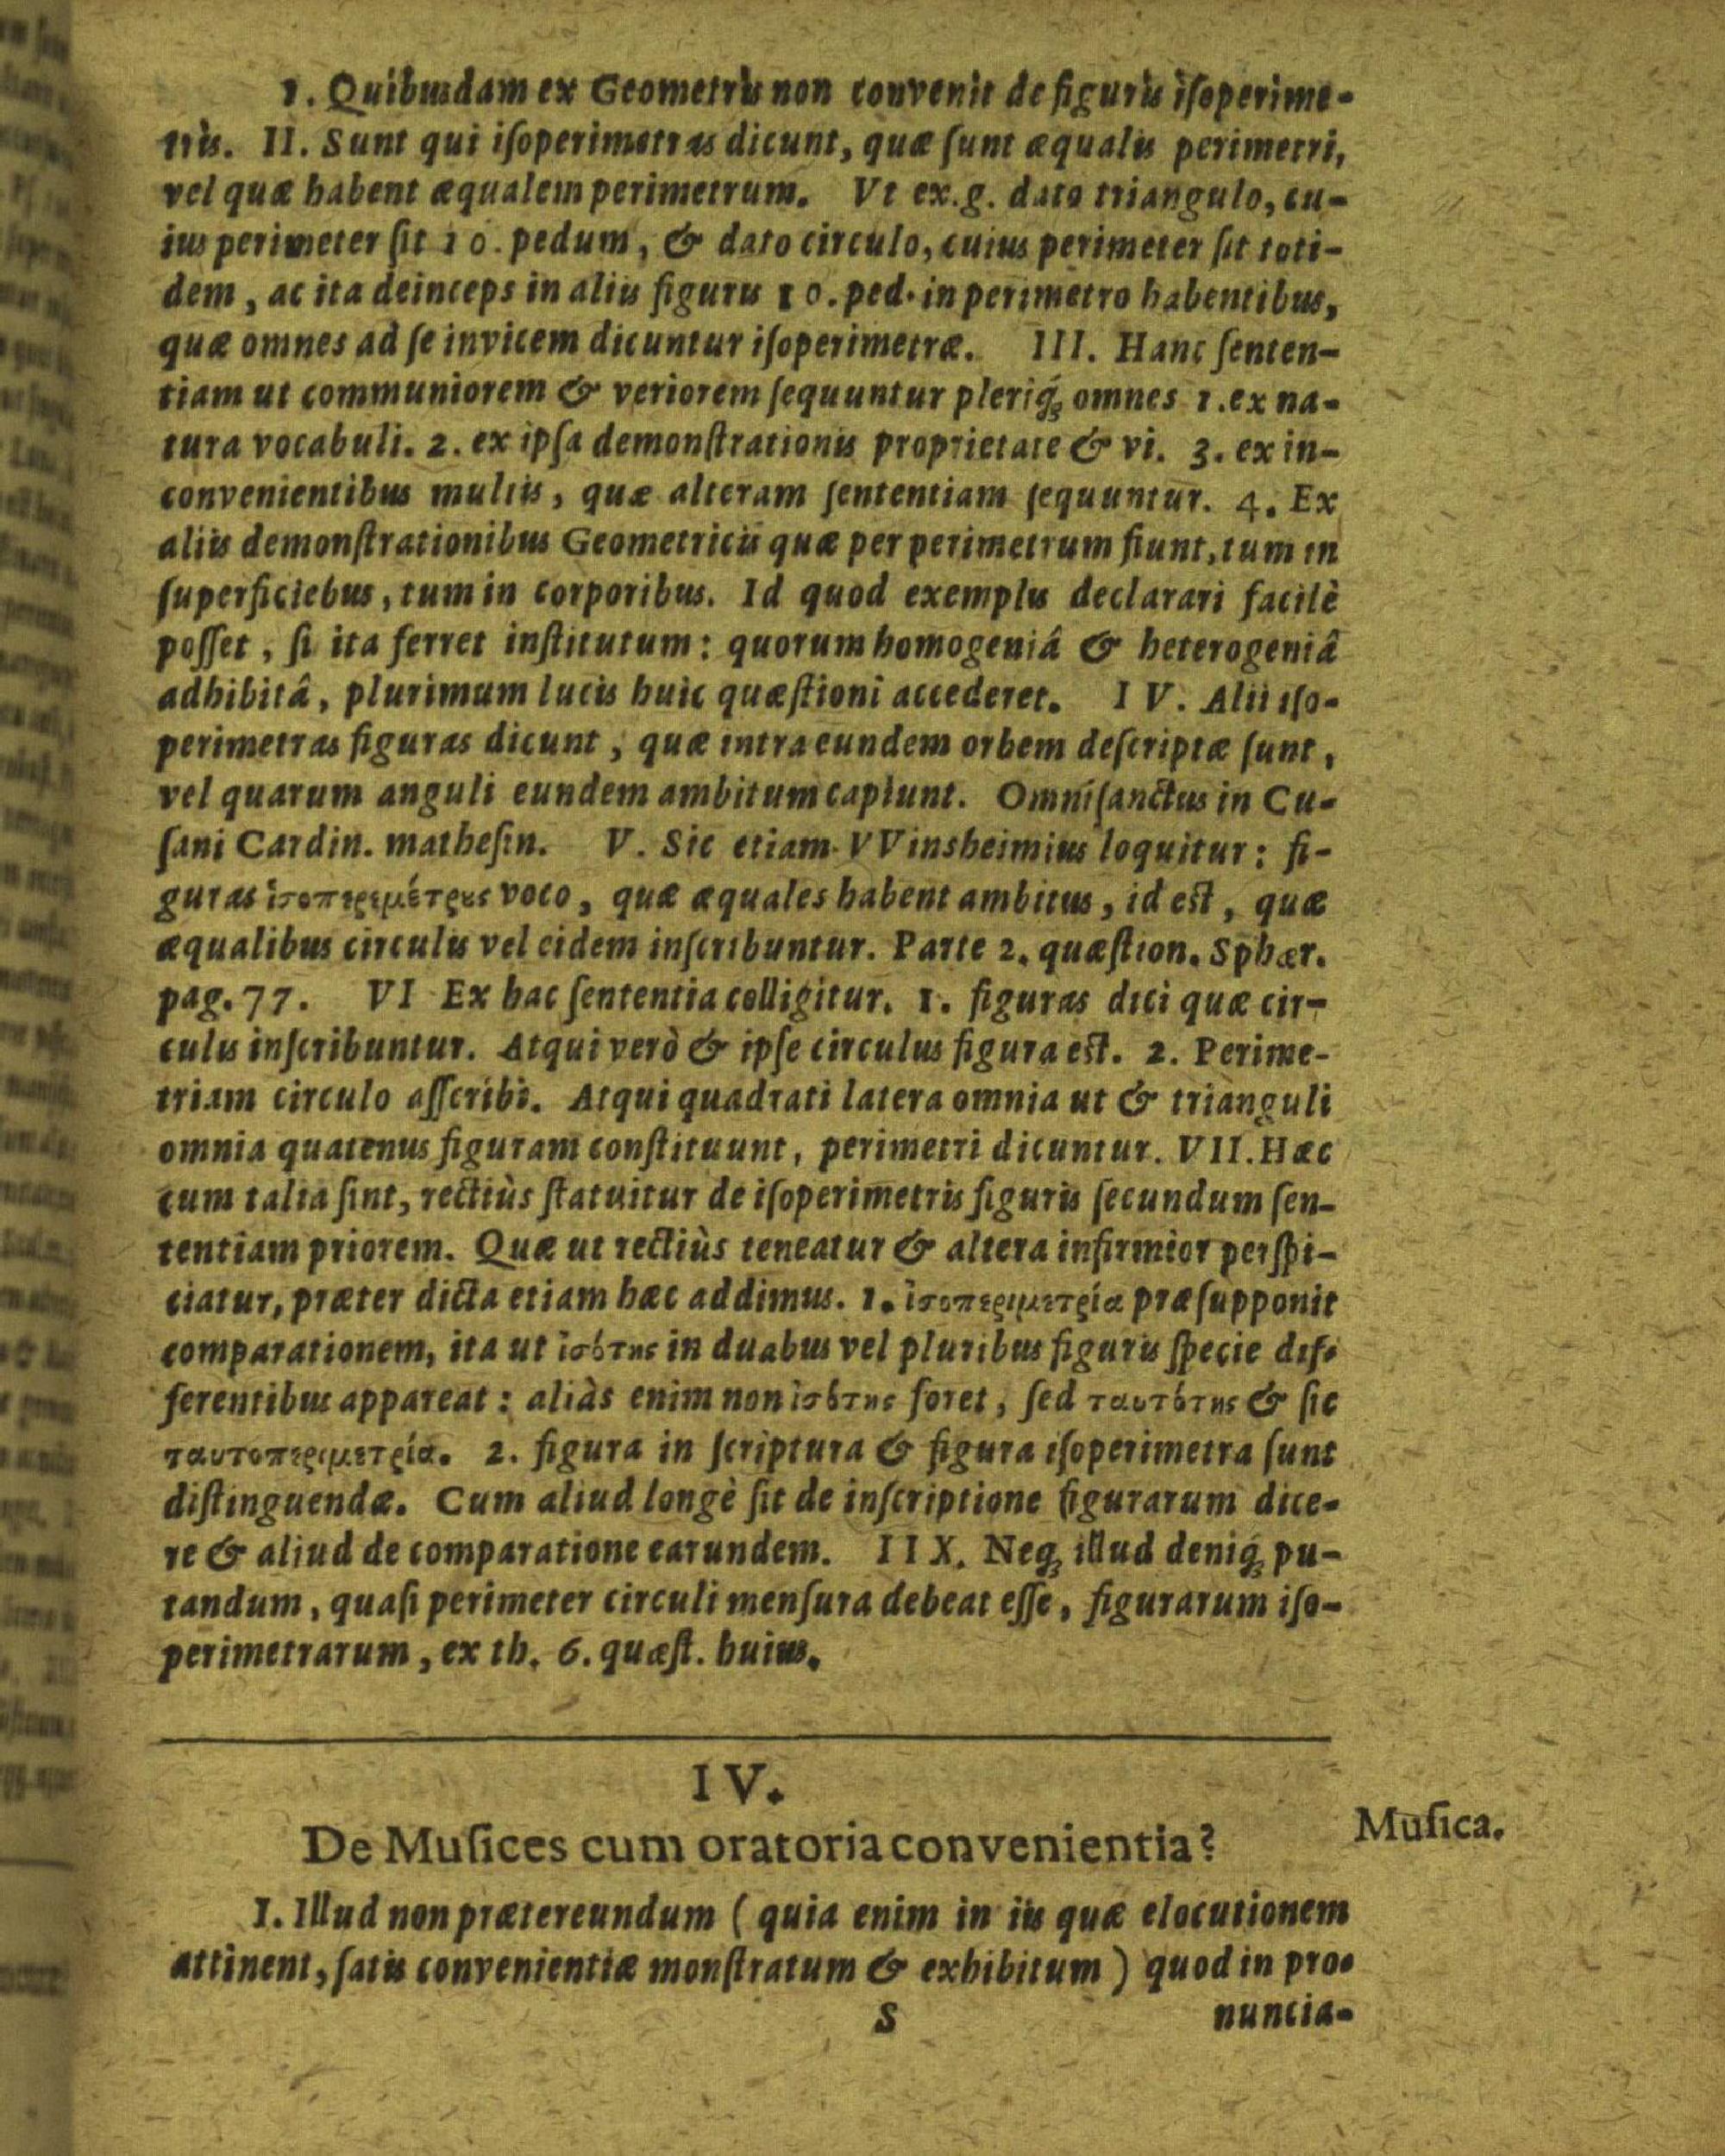 1. Quibusdam ex Geometris non convenit de figuris iſoperime-
tris. II. Sunt qui iſoperimetras dicunt, quæ ſunt æqualis perimetri,
vel quæ habent æqualem perimetrum. Vt ex.g. dato triangulo, cu-
ius perimeter ſit 10. pedum, & dato circulo, cuius perimeter ſit toti-
dem, ac ita deinceps in aliis figuris 10. ped. in perimetro habentibus,
quæ omnes ad ſe invicem dicuntur iſoperimetræ. III. Hanc ſenten-
tiam ut communiorem & veriorem ſequuntur pleriq́ꝫ omnes 1. ex na-
tura vocabuli. 2. ex ipſa demonſtrationis proprietate & vi. 3. ex in-
convenientibus multis, quæ alteram ſententiam ſequuntur. 4. Ex
aliis demonſtrationibus Geometricis quæ per perimetrum fiunt, tum in
ſuperficiebus, tum in corporibus. Id quod exemplis declarari facilè
poſſet, ſi ita ferret inſtitutum: quorum homogeniâ & heterogeniâ
adhibitâ, plurimum lucis huic quæſtioni accederet. IV. Alii iſo-
perimetras figuras dicunt, quæ intra eundem orbem deſcriptæ ſunt,
vel quarum anguli eundem ambitum capiunt. Omniſanctus in Cu-
ſani Cardin. matheſin. V. Sic etiam VVinsheimius loquitur: fi-
guras ἰσοπεριμέτρȣς voco, quæ æquales habent ambitus, id est, quæ
æqualibus circulis vel eidem inſcribuntur. Parte 2. quæſtion. Sphær.
pag. 77. VI Ex hac ſententia colligitur. 1. figuras dici quæ cir-
culis inſcribuntur. Atqui verò & ipſe circulus figura est. 2. Perime-
triam circulo aſſcribi. Atqui quadrati latera omnia ut & trianguli
omnia quatenus figuram conſtituunt, perimetri dicuntur. VII. Hæc
cum talia ſint, rectiùs ſtatuitur de iſoperimetris figuris ſecundum ſen-
tentiam priorem. Quæ ut rectiùs teneatur & altera infirmior perſpi-
ciatur, præter dicta etiam hæc addimus. 1. ἰσοπεριμετρία præſupponit
comparationem, ita ut ἰσότης in duabus vel pluribus figuris ſpecie dif-
ferentibus appareat: aliàs enim non ἰσότης foret, ſed ταυτότης & ſic
ταυτοπεριμετρία. 2. figura in ſcriptura & figura iſoperimetra ſunt
diſtinguendæ. Cum aliud longè ſit de inſcriptione figurarum dice-
re & aliud de comparatione earundem. IIX. Neq́ꝫ illud deniq́ꝫ pu-
tandum, quaſi perimeter circuli menſura debeat eſſe, figurarum iſo-
perimetrarum, ex th. 6. quæſt. huius.
IV.
De Muſices cum oratoria convenientia?
Muſica.
I. Illud non prætereundum (quia enim in iis quæ elocutionem
attinent, ſatis convenientiæ monſtratum & exhibitum) quod in pro-
S nuncia-